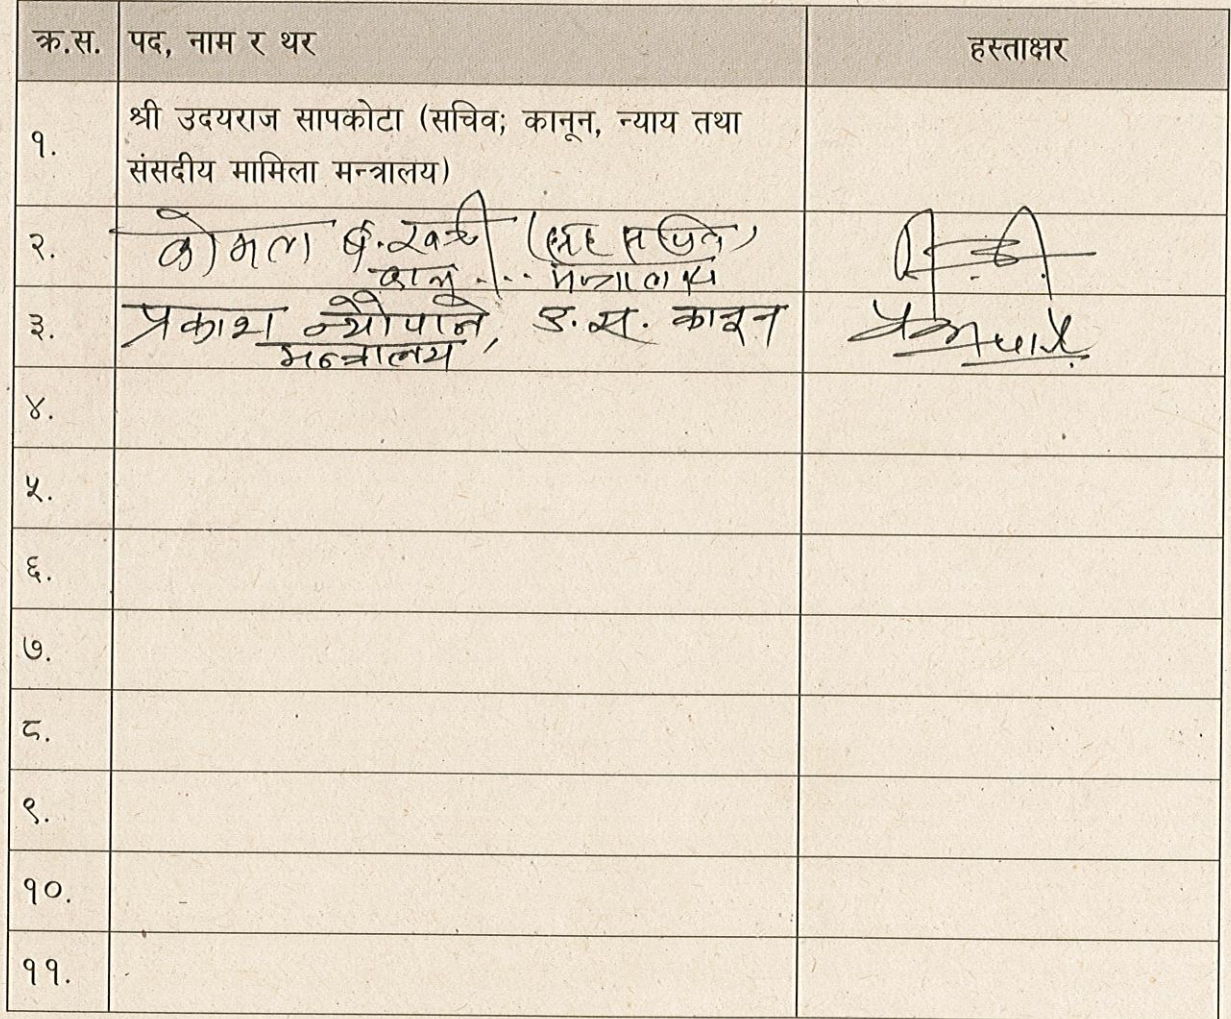 क्र.स. पद, नाम र थर हस्ताक्षर
१. श्री उदयराज सापकोटा (सचिव; कानून, न्याय तथा
संसदीय मामिला मन्त्रालय)
२. कोमल ब.खत्री (सह सचिव)
कानून... मन्त्रालय
३. प्रकाश न्यौपाने, उ.स. कानून
मन्त्रालय,
४.
५.
६.
७.
८.
९.
१०.
११.